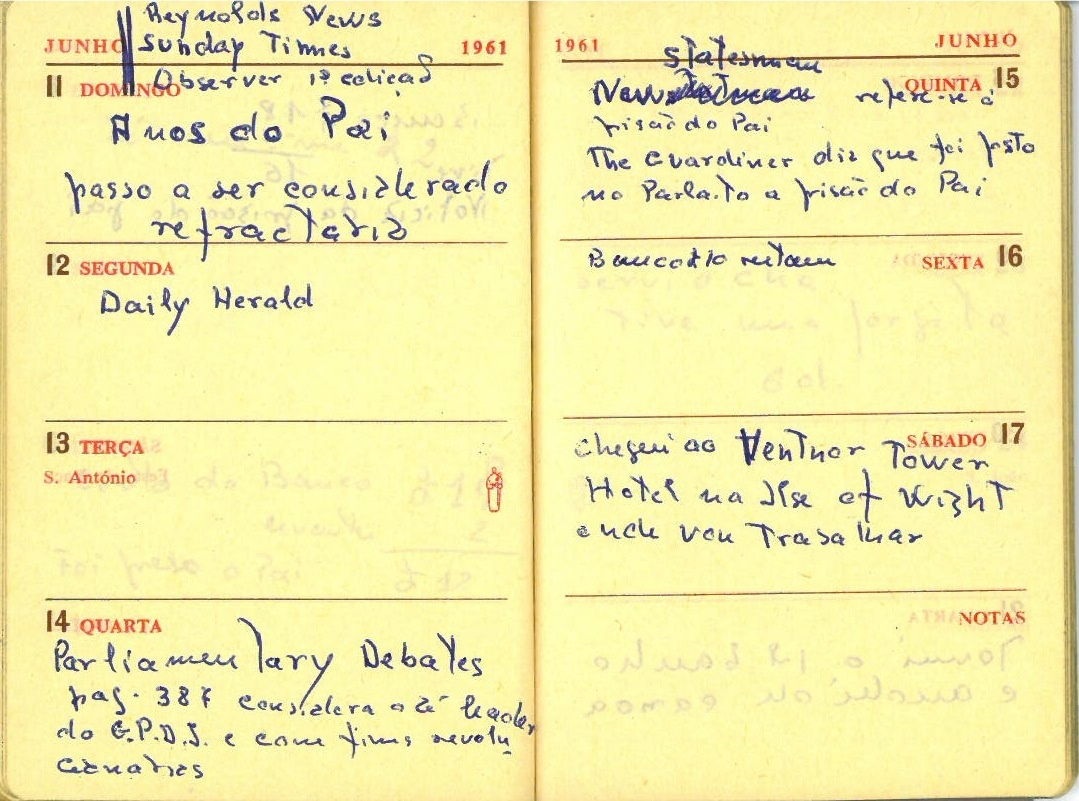 Reynolds News
JUNHO Sunday Times 1961
Observer 1ª edição
11 DOMINGO
Anos do Pai
passo a ser considerado
refractario
12 SEGUNDA
Daily Herald
13 TERÇA
S. António
14 QUARTA
Parliamentary Debates
pag. 387 considera o Zé leader
do G.P.D.S. e com fins revolu
cionarios
1961 JUNHO
Statesman
QUINTA 15
New refere-se á
prisão do Pai
The Guardiner diz que foi psto
no Parla.to a prisão do Pai
SEXTA 16
SÁBADO 17
Cheguei ao Ventnor Tower
Hotel na Ilse of Wight
onde vou Trabalhar
NOTAS